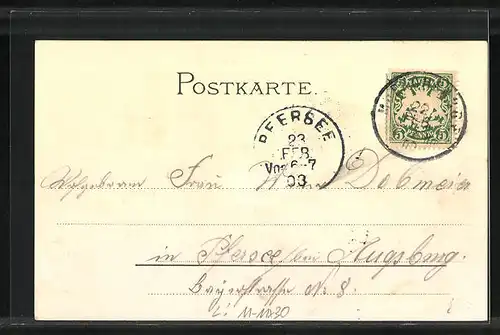 POSTKARTE.
BAYERN
5 PFENNIG 5
PFERSEE
23
FEB
Vor 6-7
03
Wohlgeboren Frau Dobmeier
in Pfersee bei Augsburg.
Bayerstrasse Nr. 8.